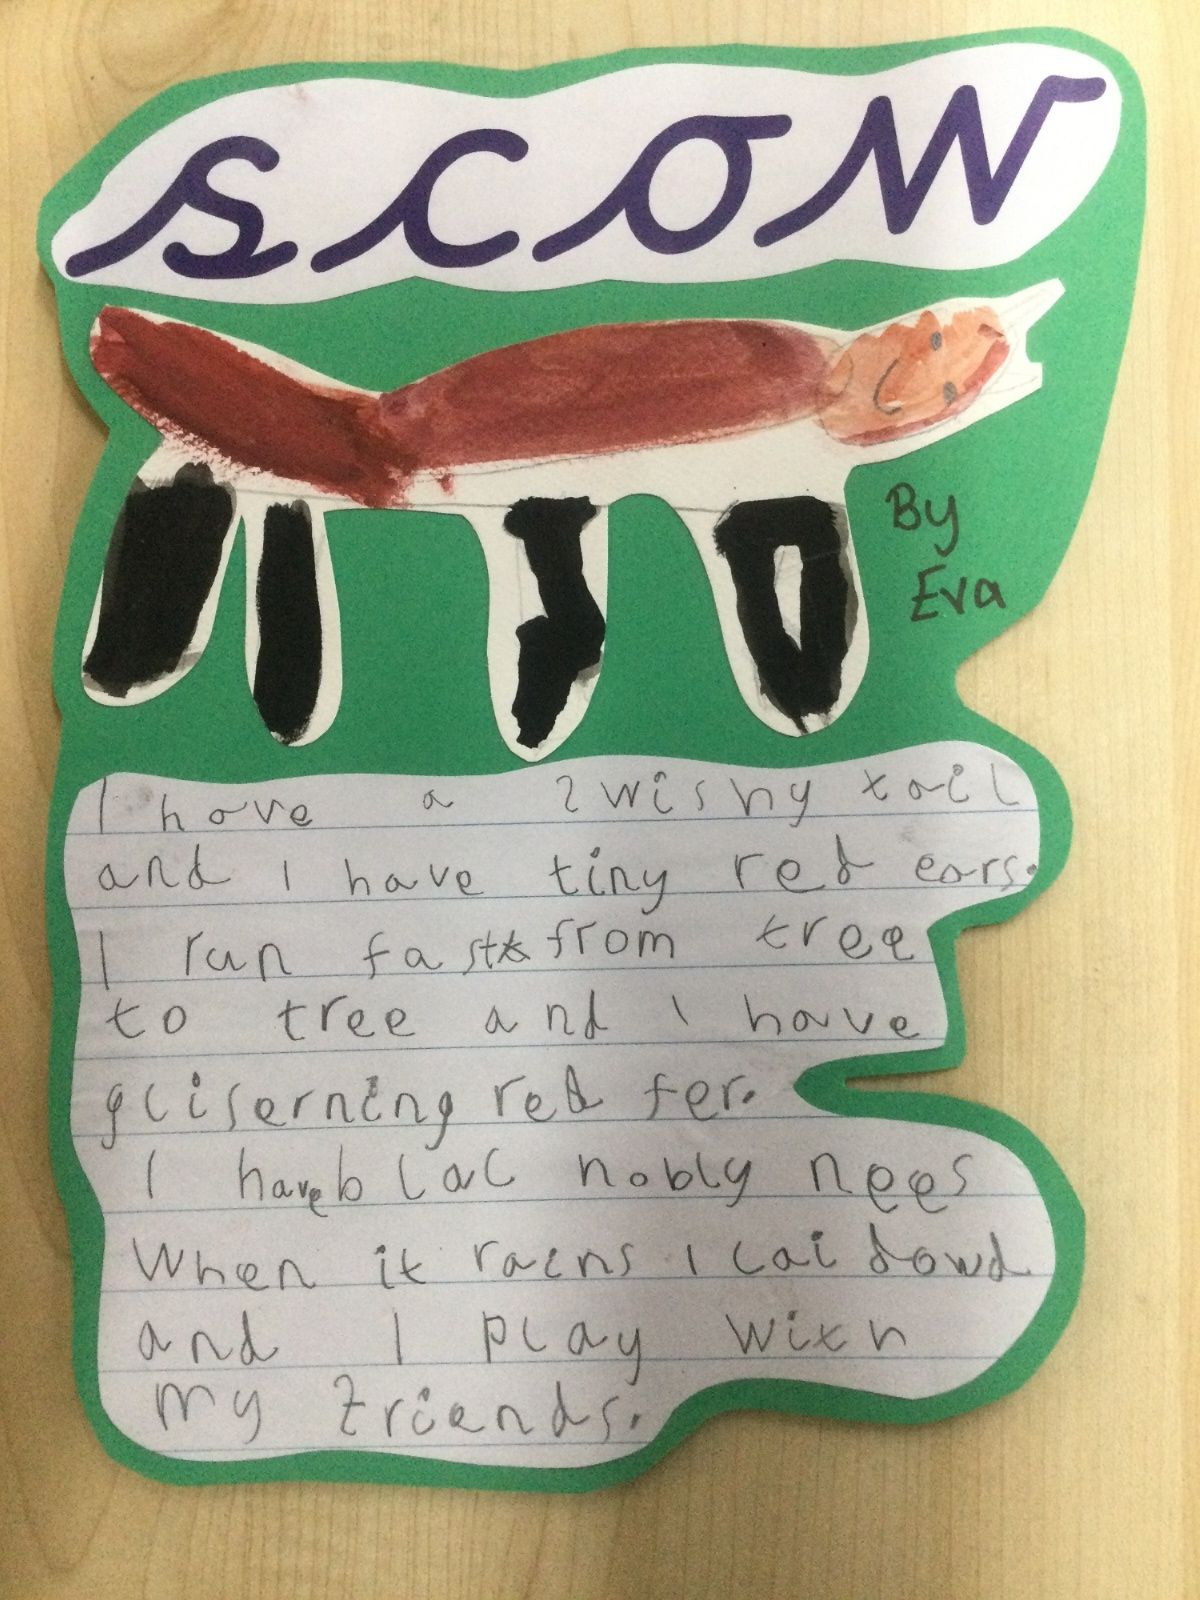 scow
By
Eva
I have a swishy tail
and I have tiny red ears.
I run fast from tree
to tree and I have
gliserning red fer.
I have blac nobly nees
When it rains I lai dowd
and I play with
my friends.